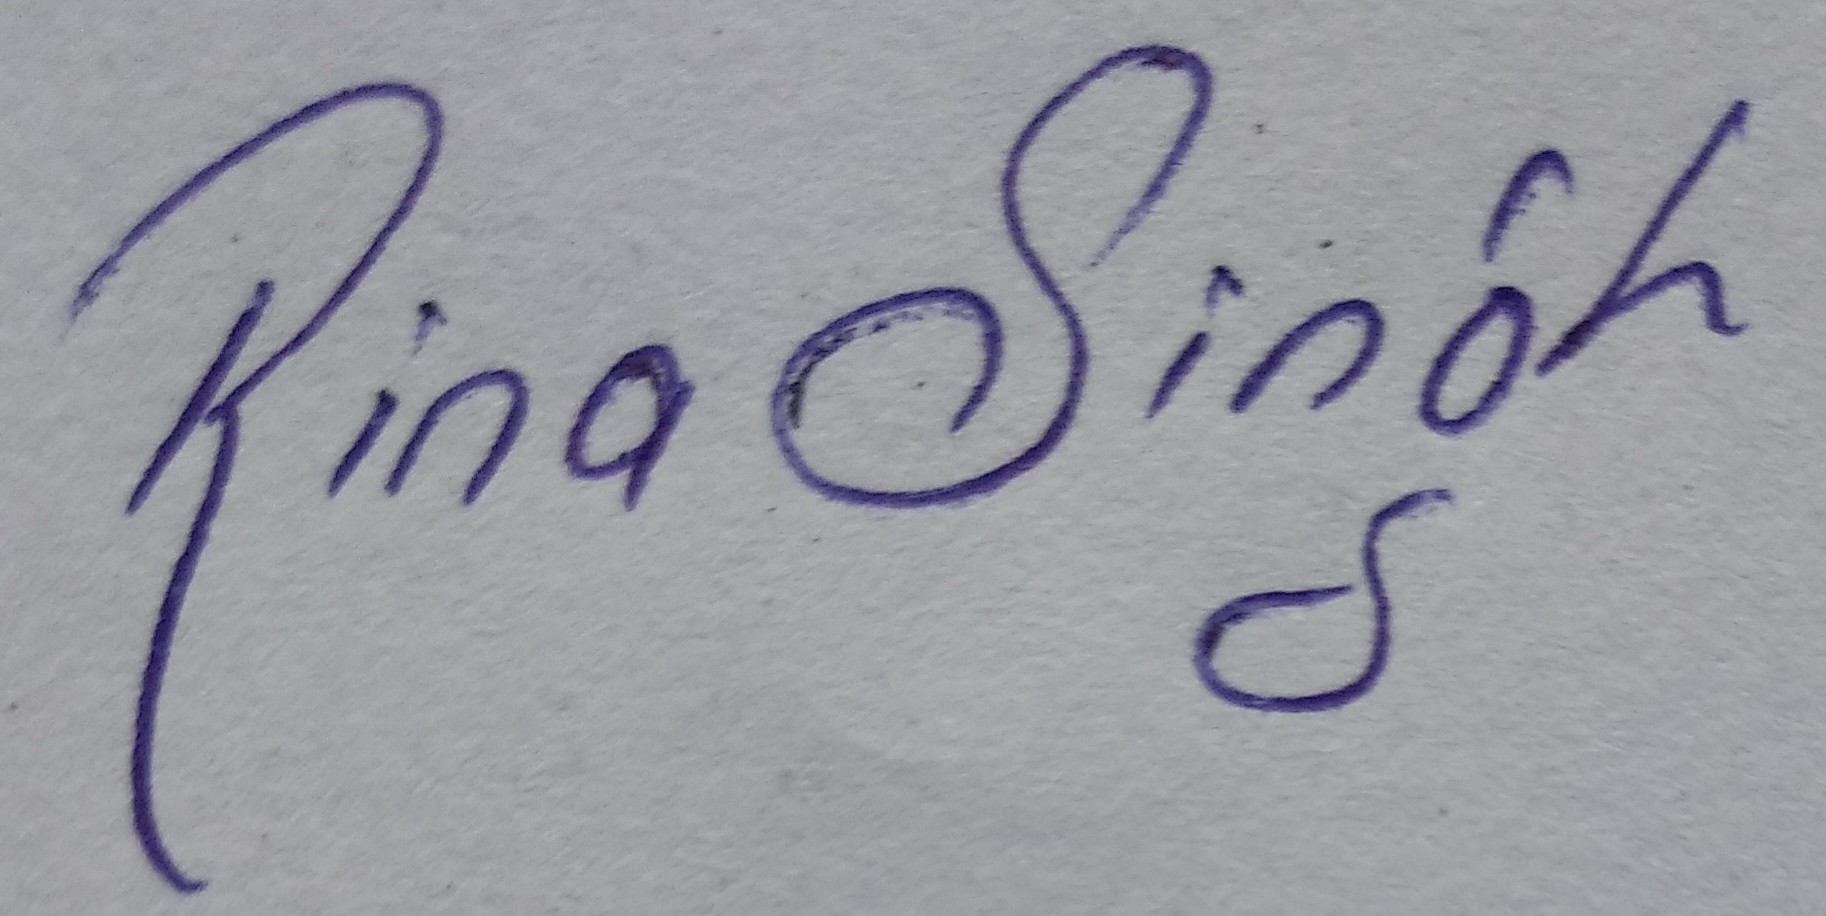 Rina Singh